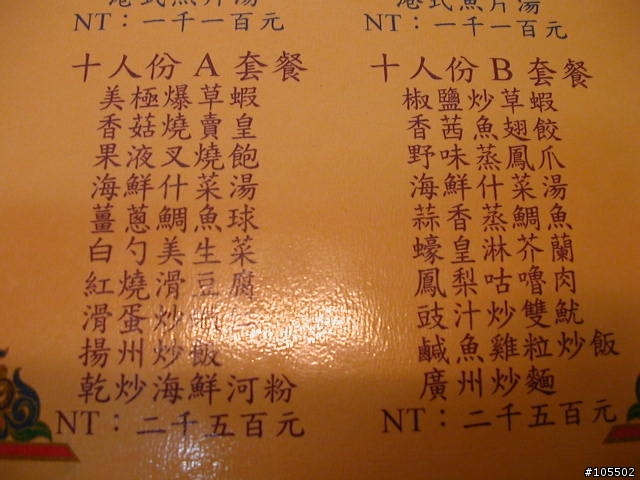 港式魚片湯
NT：一千一百元
十人份A套餐
美極爆草蝦
香菇燒賣皇
果液叉燒飽
海鮮什菜湯
薑蔥鯛魚球
白勺美生菜
紅燒滑豆腐
滑蛋炒
揚州炒飯
乾炒海鮮河粉
NT：二千五百元
港式魚片湯
NT：一千一百元
十人份B套餐
椒鹽炒草蝦
香茜魚翅餃
野味蒸鳳爪
海鮮什菜湯
蒜香蒸鯛魚
蠔皇淋芥蘭
鳳梨咕嚕肉
豉汁炒雙魷
鹹魚雞粒炒飯
廣州炒麵
NT：二千五百元
#105502